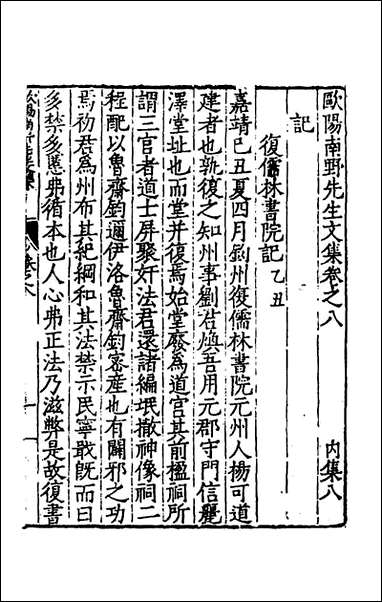 歐陽南野先生文集卷之八　內集八
記
復儒林書院記乙丑
嘉靖己丑夏四月鈞州復儒林書院元州人楊可道
建者也孰復之知州事劉君慎吾用元郡守門信麗
澤堂址也而堂并復焉始堂廢為道宮其前楹祠所
謂三官者道士屏聚奸法君還諸編氓撤神像祠二
程配以魯齋鈞邇伊洛魯齋鈞密產也有闢邪之功
焉初君為州布其紀綱和其法禁示民寧戢既而曰
多禁多慝弗循本也人心弗正法乃滋弊是故復書